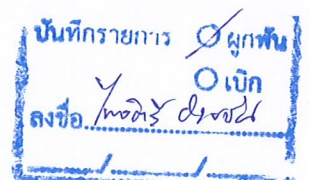 บันทึกรายการ ผูกพัน
เบิก
ลงชื่อ